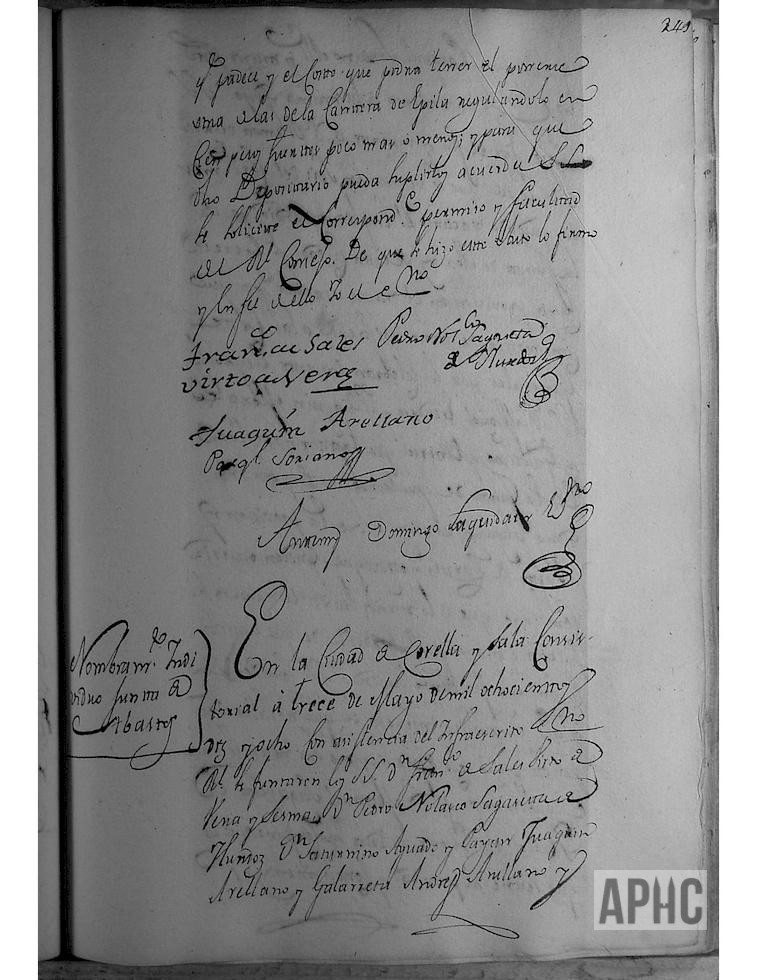 249
y padece y el Costo que podra tener el ponerse
una de las de la Carretera de Epila regulandolo en
Cien pesos fuertes poco mas o menos; y para que
dho Depositario pueda suplirlos acuerdan S.S.
se solicite el Correspond.te permiso y facultad
del Rl. Consejo. De que se hizo este Auto lo firmo
y en fee de ello Yo el Esno.
Fran.co de Sales Pedro Nol.co Sagaseta
virto de Vera de Muñoz
Juaquin Arellano
Pasql. Soriano
Antonio Domingo Laquidain Esno
Nombram.to Indi
viduo Junta de
Abastos
En la Ciudad de Corella y Sala Consis-
torial á trece de Mayo de mil ochocientos
diez y ocho Con asistencia del Infraescrito Esno
Rl. se juntaron los SS. Dn. Fran.co de Sales Virto de
Vera y Sesma, Dn. Pedro Nolasco Sagaseta de
Muñoz Dn. Saturnino Aguado y Juaquin
Arellano y Galarreta Andres Arellano y
APHC